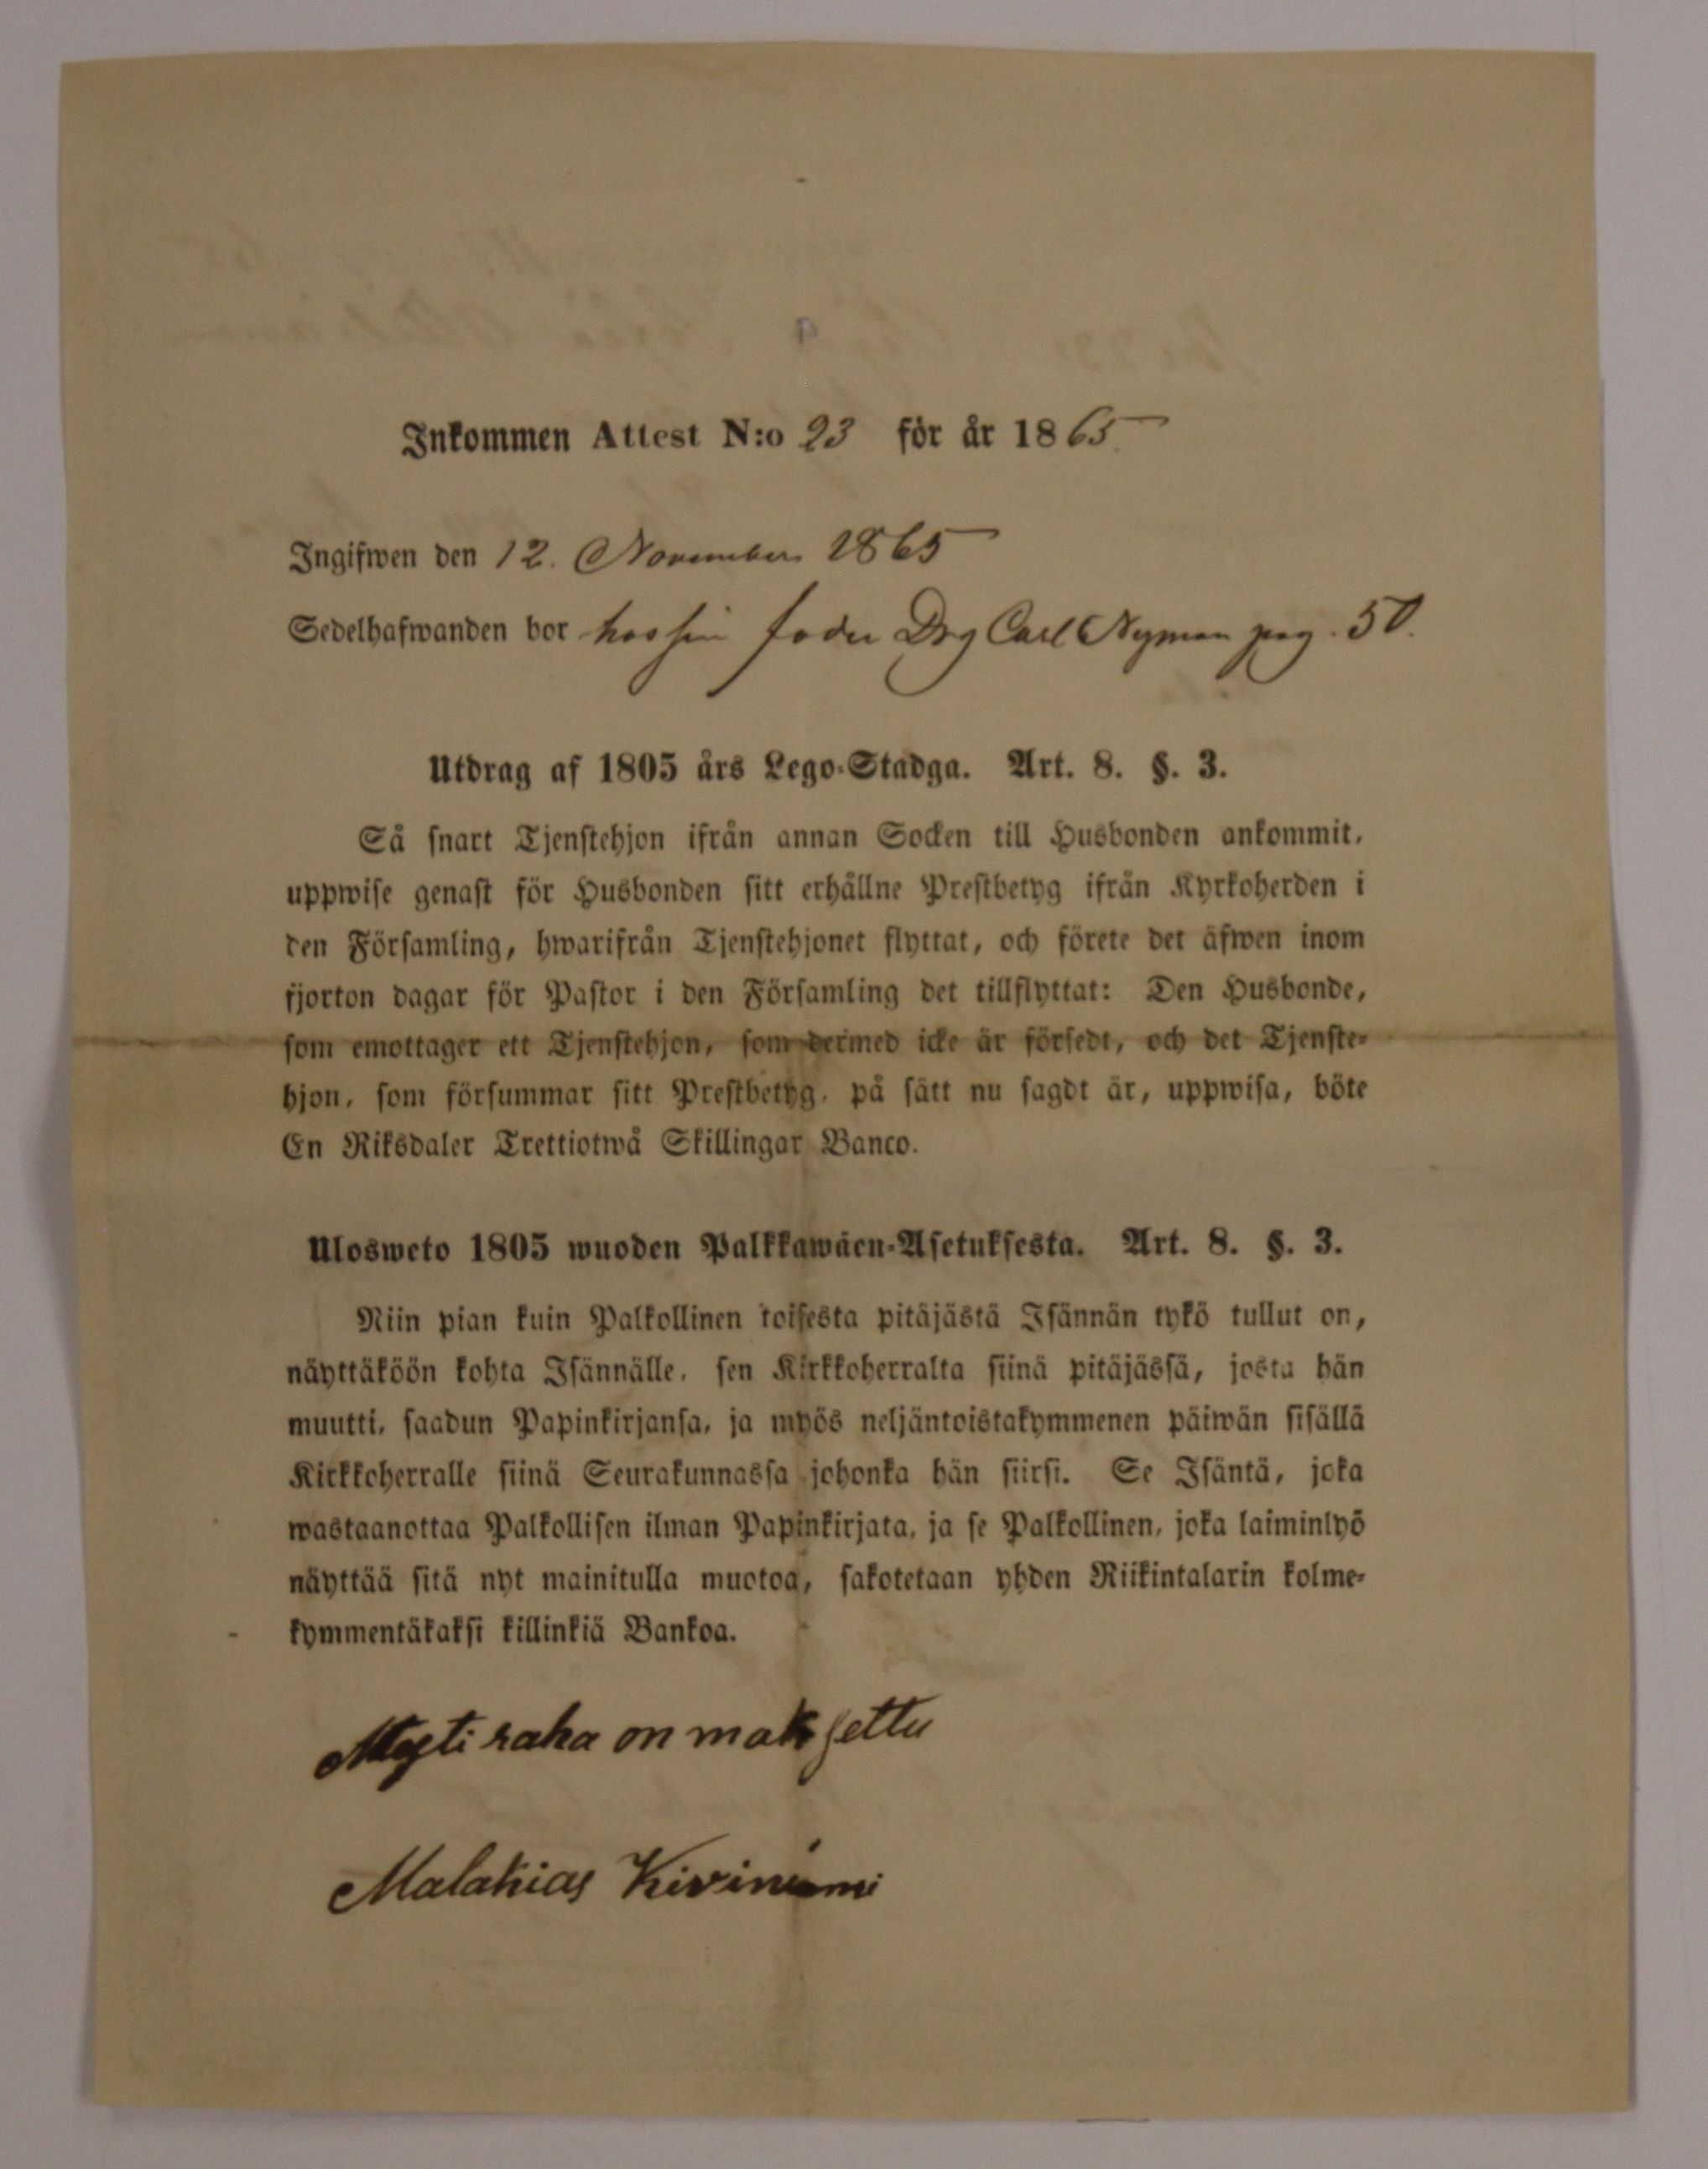 Inkommen Attest N:o 23 för år 1865
Ingifwen den 12. November 1865
Sedelhafwanden bor hos sin fader Drg Carl Nyman pag. 50.
Utdrag af 1805 års Lego-Stadga. Art. 8. §. 3.
Så snart Tjenstehjon ifrån annan Socken till Husbonden ankommit,
uppwise genast för Husbonden sitt erhållne Prestbetyg ifrån Kyrkoherden i
den Församling, hwarifrån Tjenstehjonet flyttat, och förete det äfwen inom
fjorton dagar för Pastor i den Församling det tillflyttat: Den Husbonde,
som emottager ett Tjenstehjon, som dermed icke är försedt, och det Tjenste-
hjon, som försummar sitt Prestbetyg, på sätt nu sagdt är, uppwisa, böte
En Riksdaler Trettiotwå Skillingar Banco.
Ulosweto 1805 wuoden Palkkawäen-Asetuksesta. Art. 8. §. 3.
Niin pian kuin Palkollinen toisesta pitäjästä Isännän tykö tullut on,
näyttäköön kohta Isännälle, sen Kirkkoherralta siinä pitäjässä, josta hän
muutti, saadun Papinkirjansa, ja myös neljäntoistakymmenen päiwän sisällä
Kirkkoherralle siinä Seurakunnassa johonka hän siirsi. Se Isäntä, joka
wastaanottaa Palkollisen ilman Papinkirjata, ja se Palkollinen, joka laiminlyö
näyttää sitä nyt mainitulla muotoa, sakotetaan yhden Riikintalarin kolme-
kymmentäkaksi killinkiä Bankoa.
raha on maksettu
Malakias Kiviniemi